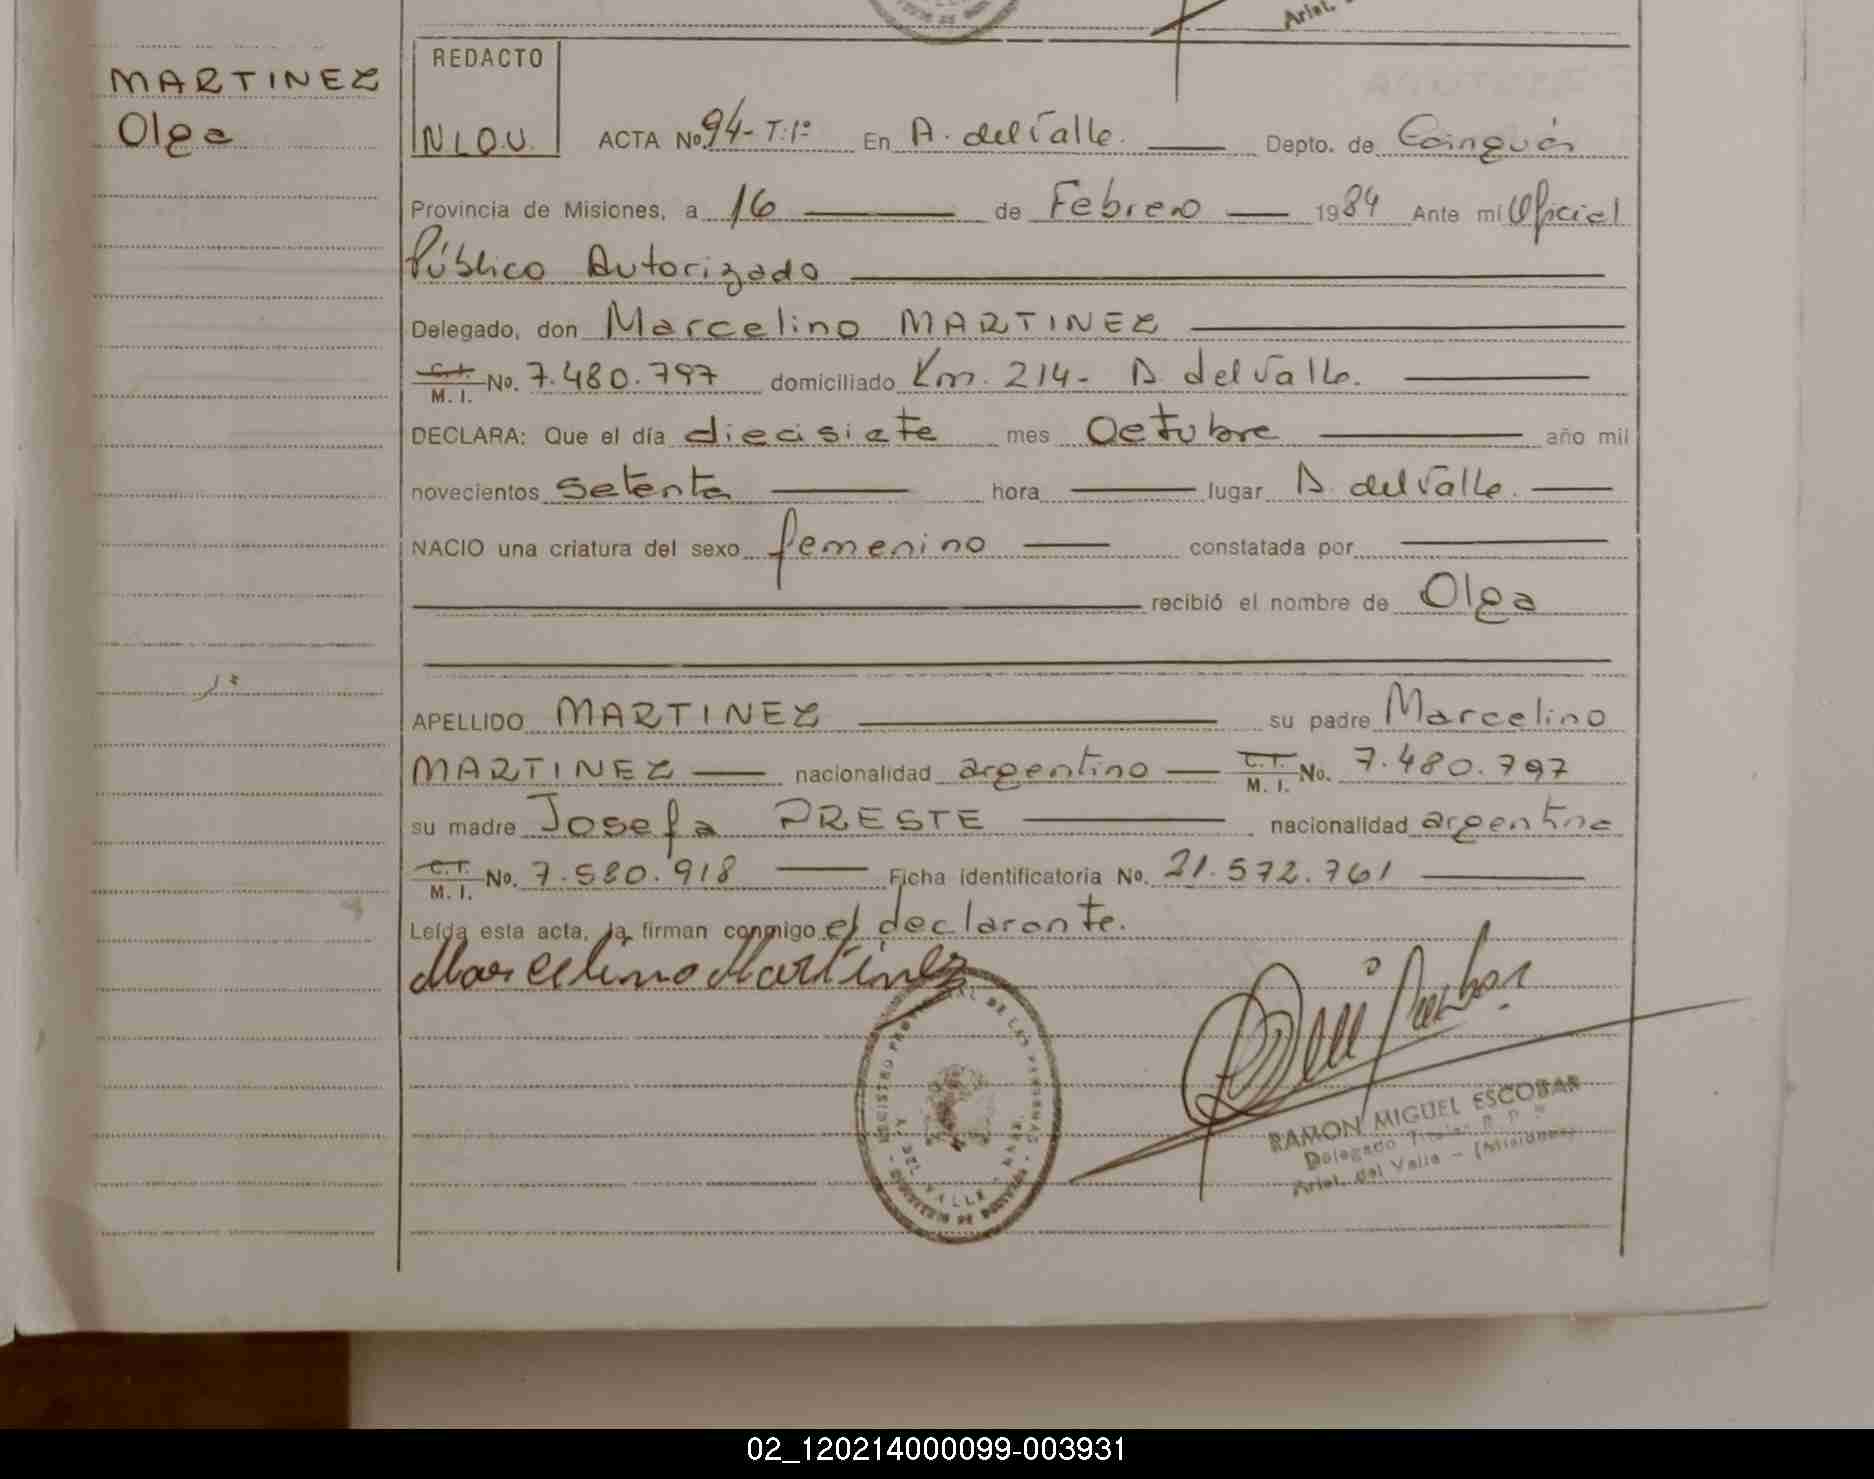 Ariel.
MARTINEZ
Olga
REDACTO
N.L.O.U.
ACTA No. 94-T:1º En A. del Valle. Depto. de Cainguás
Provincia de Misiones, a 16 de Febrero 1984 Ante mi Oficial
Público Autorizado
Delegado, don Marcelino MARTINEZ
C.I. M. I. No. 7.480.797 domiciliado Km. 214- A. del Valle.
DECLARA: Que el día diecisiete mes Octubre año mil
novecientos setenta hora lugar A. del Valle.
NACIO una criatura del sexo femenino constatada por
recibió el nombre de Olga
APELLIDO MARTINEZ su padre Marcelino
MARTINEZ nacionalidad argentino C.I. M. I. No. 7.480.797
su madre Josefa PRESTE nacionalidad argentina
C.I. M. I. No. 7.580.918 Ficha identificatoria No. 21.572.761
Leída esta acta, la firman conmigo el declarante.
Marcelino Martínez
REGISTRO PROVINCIAL DE LAS PERSONAS
A. DEL VALLE
RAMON MIGUEL ESCOBAR
Delegado Titular R. P. P.
Arist. del Valle - (Misiones)
02_120214000099-003931